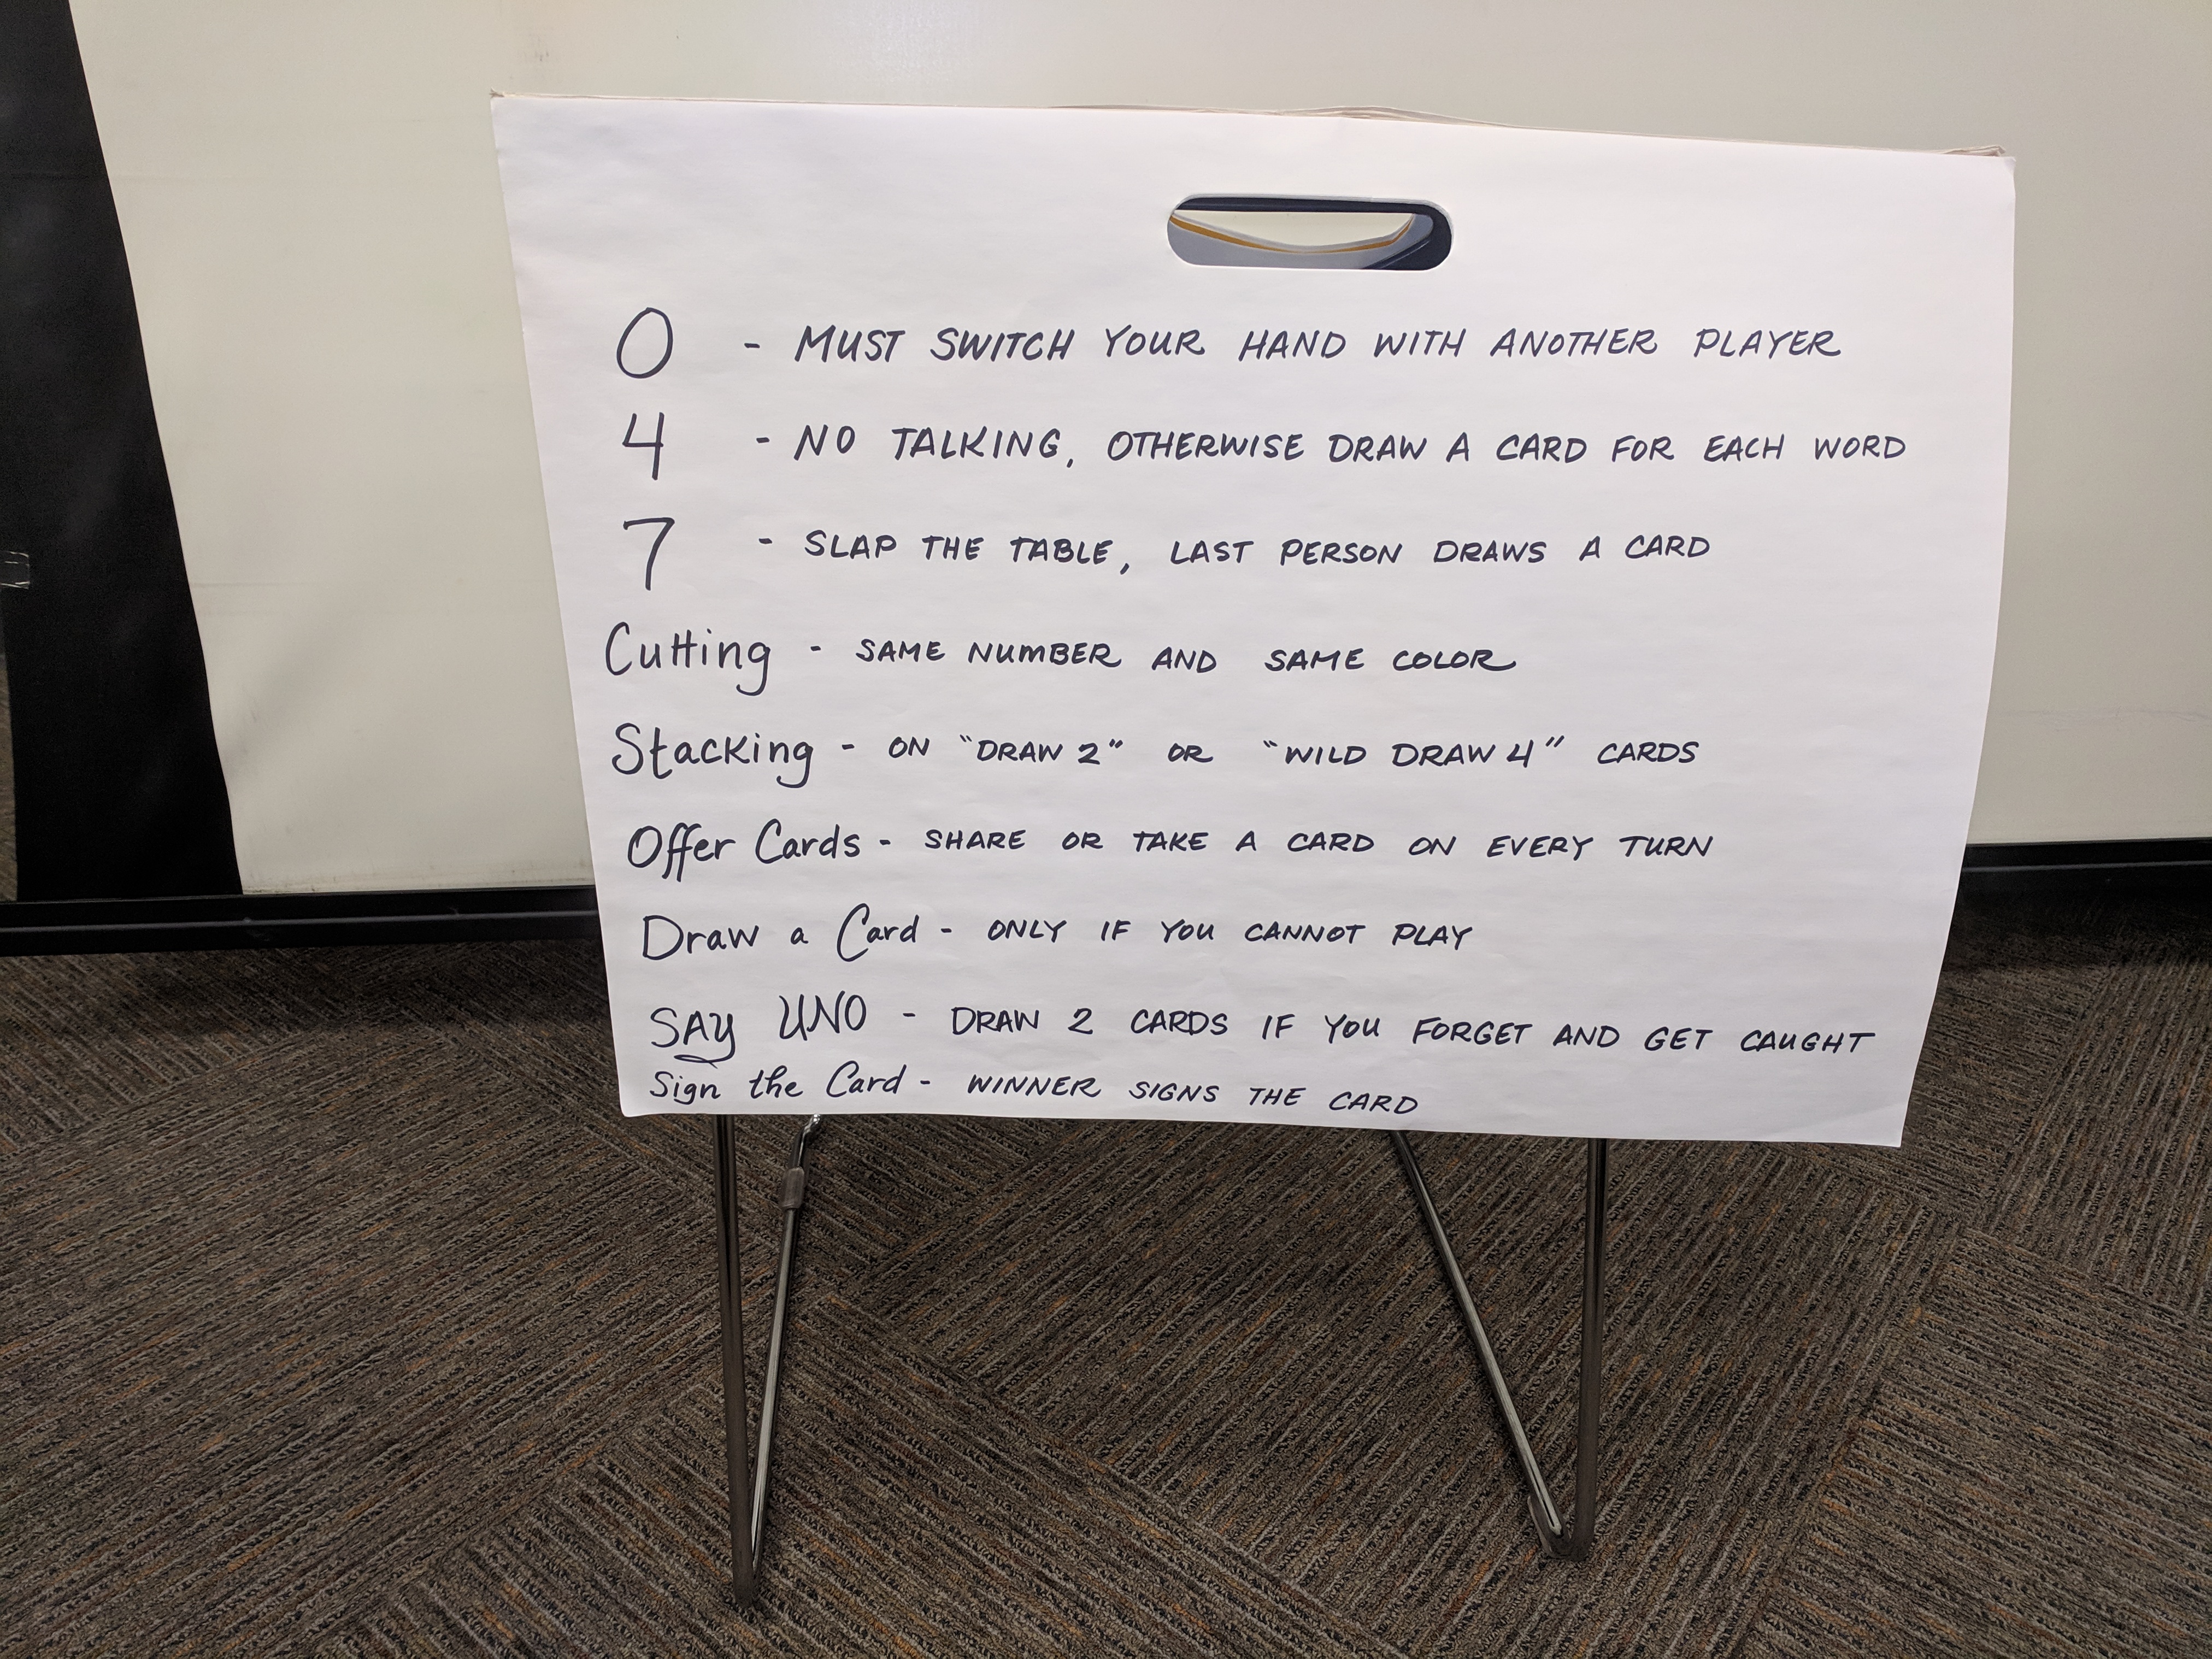 0 - MUST SWITCH YOUR HAND WITH ANOTHER PLAYER
4 - NO TALKING, OTHERWISE DRAW A CARD FOR EACH WORD
7 - SLAP THE TABLE, LAST PERSON DRAWS A CARD
Cutting - SAME NUMBER AND SAME COLOR
Stacking - ON "DRAW 2" OR "WILD DRAW 4" CARDS
Offer Cards - SHARE OR TAKE A CARD ON EVERY TURN
Draw a Card - ONLY IF YOU CANNOT PLAY
SAY UNO - DRAW 2 CARDS IF YOU FORGET AND GET CAUGHT
Sign the Card - WINNER SIGNS THE CARD